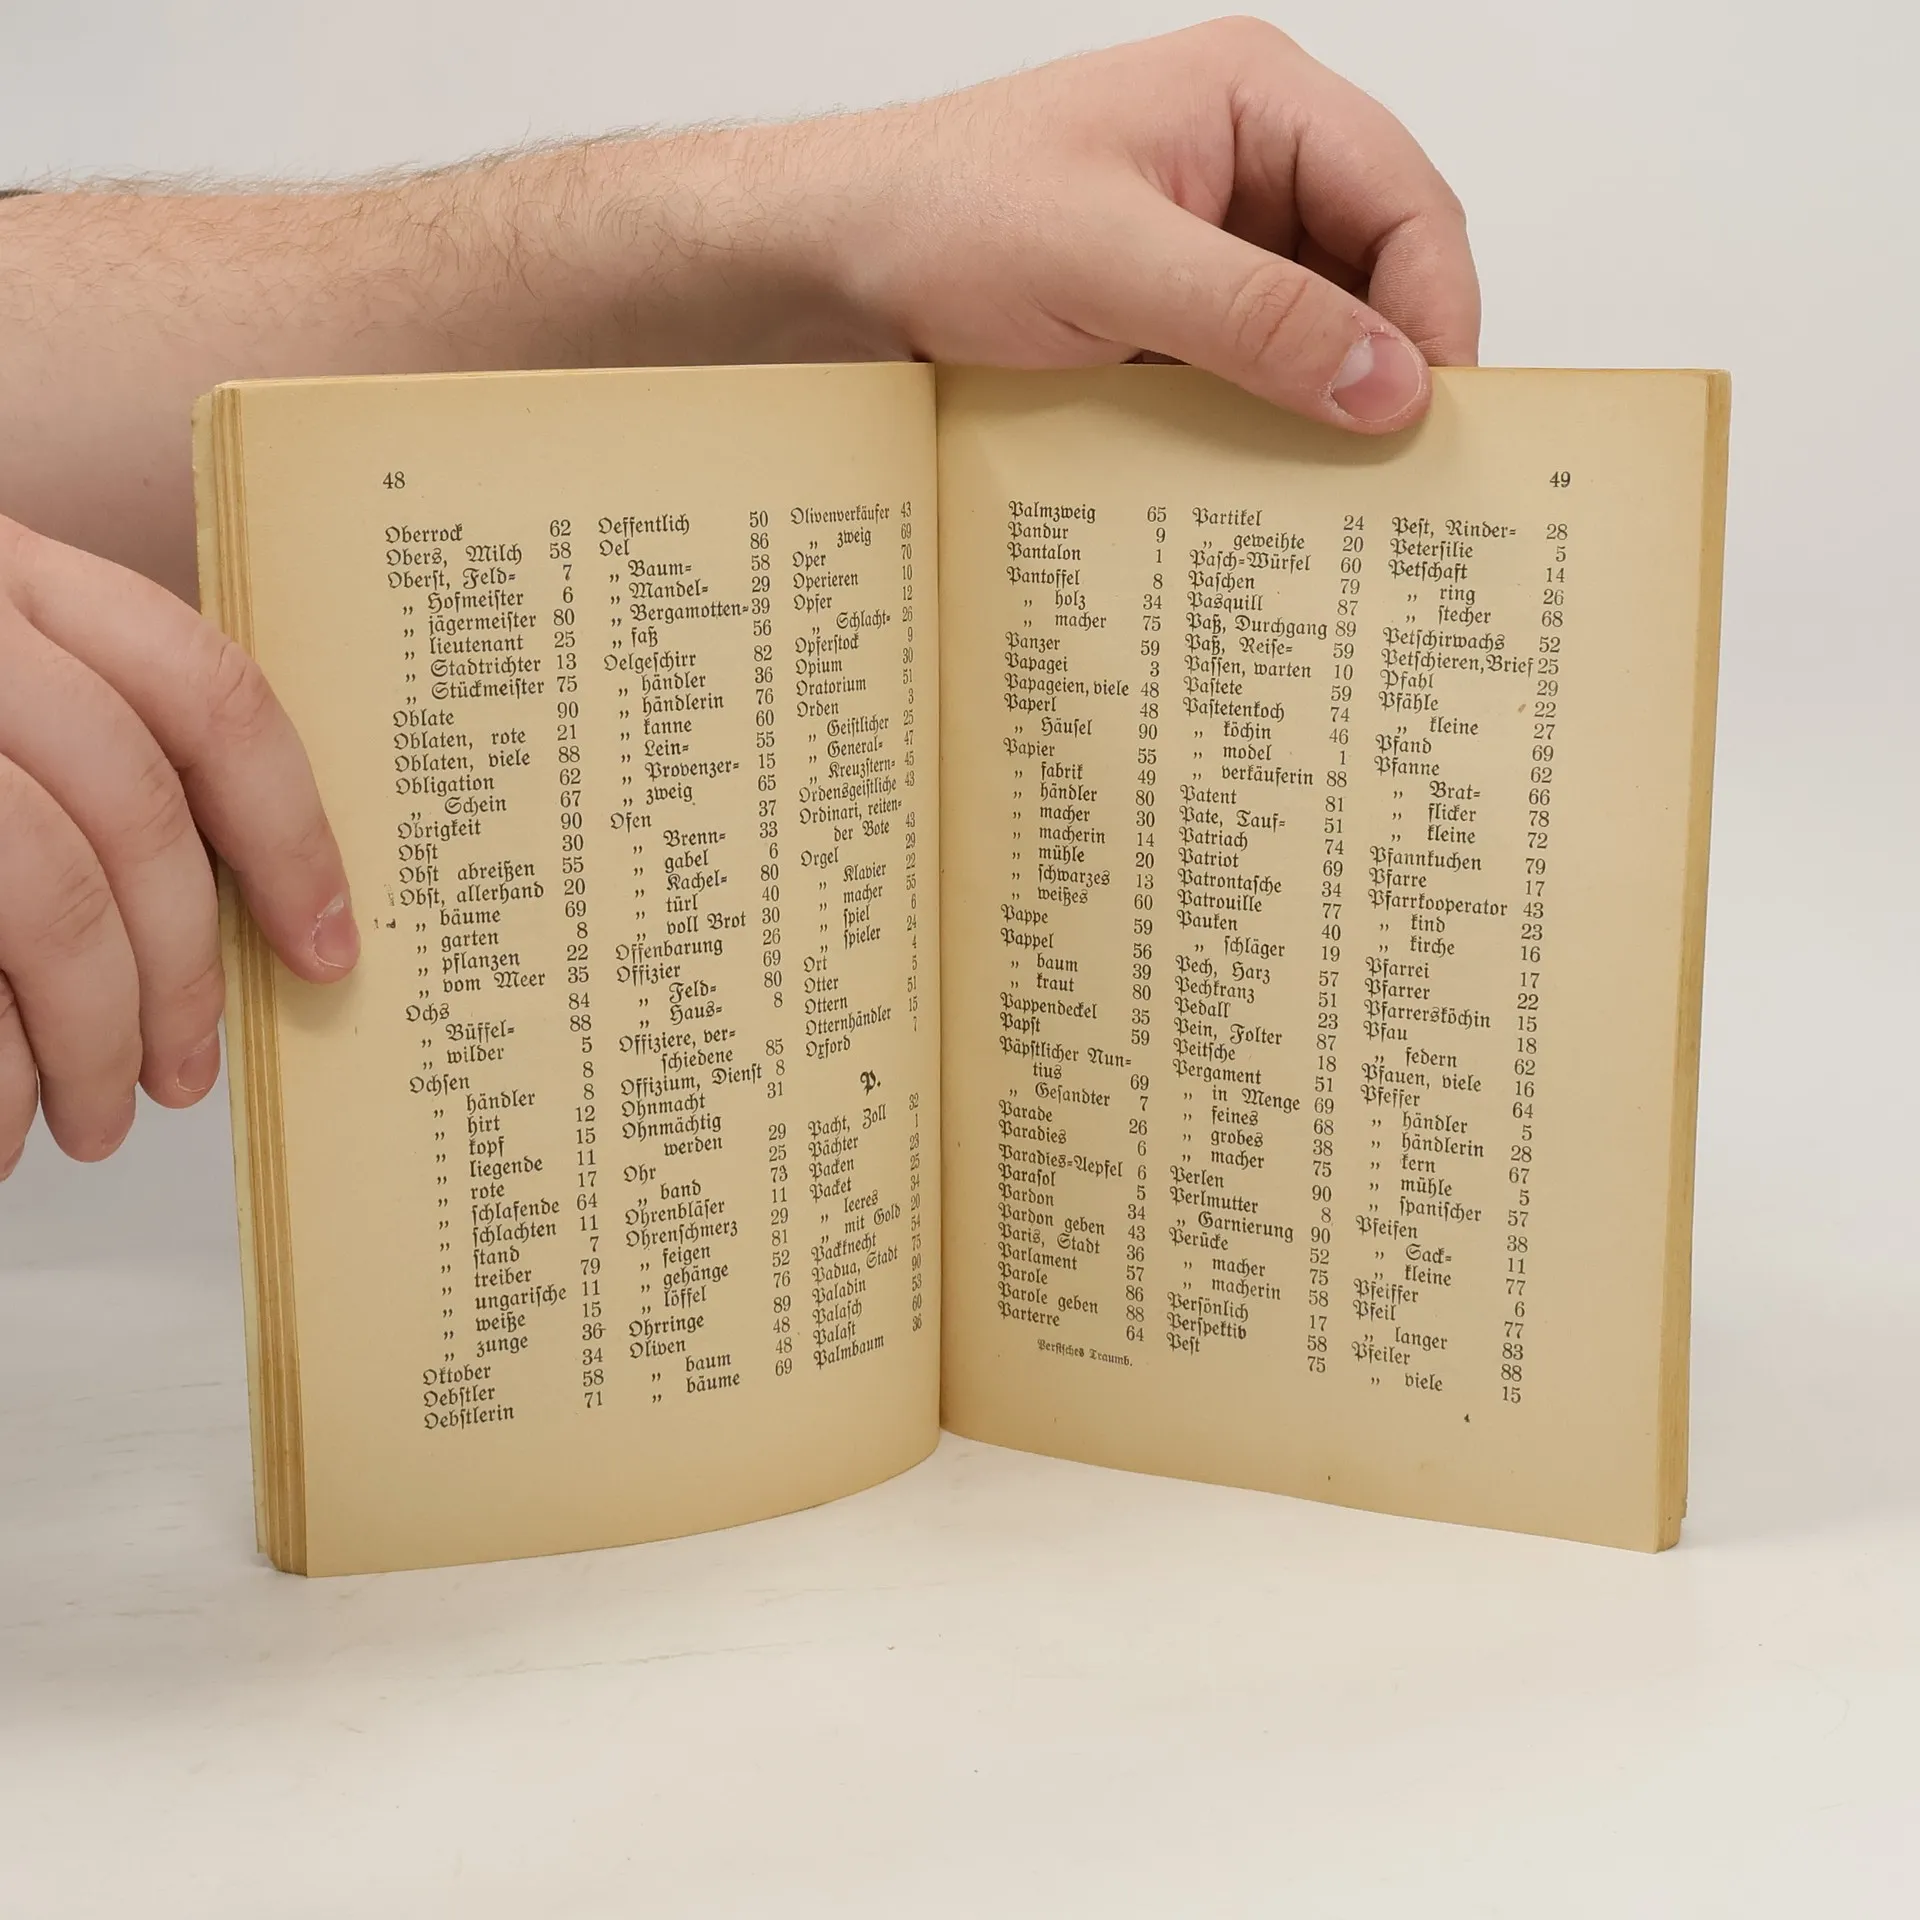 48
Oberrock 62
Obers, Milch 58
Oberst, Feld= 7
„ Hofmeister 6
„ jägermeister 80
„ lieutenant 25
„ Stadtrichter 13
„ Stückmeister 75
Oblate 90
Oblaten, rote 21
Oblaten, viele 88
Obligation 62
„ Schein 67
Obrigkeit 90
Obst 30
Obst abreißen 55
Obst, allerhand 20
„ bäume 69
„ garten 8
„ pflanzen 22
„ vom Meer 35
Ochs 84
„ Büffel= 88
„ wilder 5
Ochsen 8
„ händler 8
„ hirt 12
„ kopf 15
„ liegende 11
„ rote 17
„ schlafende 64
„ schlachten 11
„ stand 7
„ treiber 79
„ ungarische 11
„ weiße 15
„ zunge 36
Oktober 34
Oebstler 58
Oebstlerin 71
Oeffentlich 50
Oel 86
„ Baum= 58
„ Mandel= 29
„ Bergamotten= 39
„ faß 56
Oelgeschirr 82
„ händler 36
„ händlerin 76
„ kanne 60
„ Lein= 55
„ Provenzer= 15
„ zweig 65
Ofen 37
„ Brenn= 33
„ gabel 6
„ Kachel= 80
„ türl 40
„ voll Brot 30
Offenbarung 26
Offizier 69
„ Feld= 80
„ Haus= 8
Offiziere, ver=
schiedene 85
Offizium, Dienst 8
Ohnmacht 31
Ohnmächtig
werden 29
Ohr 25
„ band 73
Ohrenbläser 11
Ohrenschmerz 29
„ feigen 81
„ gehänge 52
„ löffel 76
Ohrringe 89
Oliven 48
„ baum 48
„ bäume 69
Olivenverkäufer 43
„ zweig 69
Oper 70
Operieren 10
Opfer 12
„ Schlacht= 26
Opferstock 9
Opium 30
Oratorium 51
Orden 3
„ Geistlicher 25
„ General= 47
„ Kreuzstern= 45
Ordensgeistliche 43
Ordinari, reiten=
der Bote 43
Orgel 29
„ Klavier 22
„ macher 55
„ spiel 6
„ spieler 24
Ort 4
Otter 5
Ottern 51
Otternhändler 15
Oxford 7
P.
Pacht, Zoll 32
Pächter 1
Packen 23
Packet 25
„ leeres 34
„ mit Gold 20
Packknecht 54
Padua, Stadt 75
Paladin 90
Palasch 53
Palast 60
Palmbaum 36
49
Palmzweig 65
Pandur 9
Pantalon 1
Pantoffel 8
„ holz 34
„ macher 75
Panzer 59
Papagei 3
Papageien, viele 48
Paperl 48
„ Häusel 90
Papier 55
„ fabrik 49
„ händler 80
„ macher 30
„ macherin 14
„ mühle 20
„ schwarzes 13
„ weißes 60
Pappe 59
Pappel 56
„ baum 39
„ kraut 80
Pappendeckel 35
Papst 59
Päpstlicher Nun=
tius 69
„ Gesandter 7
Parade 26
Paradies 6
Paradies=Aepfel 6
Parasol 5
Pardon 34
Pardon geben 43
Paris, Stadt 36
Parlament 57
Parole 86
Parole geben 88
Parterre 64
Persisches Traumb.
Partikel 24
„ geweihte 20
Pasch=Würfel 60
Paschen 79
Pasquill 87
Paß, Durchgang 89
Paß, Reise= 59
Passen, warten 10
Pastete 59
Pastetenkoch 74
„ köchin 46
„ model 1
„ verkäuferin 88
Patent 81
Pate, Tauf= 51
Patriach 74
Patriot 69
Patrontasche 34
Patrouille 77
Pauken 40
„ schläger 19
Pech, Harz 57
Pechkranz 51
Pedall 23
Pein, Folter 87
Peitsche 18
Pergament 51
„ in Menge 69
„ feines 68
„ grobes 38
„ macher 75
Perlen 90
Perlmutter 8
„ Garnierung 90
Perücke 52
„ macher 75
„ macherin 58
Persönlich 17
Perspektiv 58
Pest 75
Pest, Rinder= 28
Petersilie 5
Petschaft 14
„ ring 26
„ stecher 68
Petschirwachs 52
Petschieren,Brief 25
Pfahl 29
Pfähle 22
„ kleine 27
Pfand 69
Pfanne 62
„ Brat= 66
„ flicker 78
„ kleine 72
Pfannkuchen 79
Pfarre 17
Pfarrkooperator 43
„ kind 23
„ kirche 16
Pfarrei 17
Pfarrer 22
Pfarrersköchin 15
Pfau 18
„ federn 62
Pfauen, viele 16
Pfeffer 64
„ händler 5
„ händlerin 28
„ kern 67
„ mühle 5
„ spanischer 57
Pfeifen 38
„ Sack= 11
„ kleine 77
Pfeiffer 6
Pfeil 77
„ langer 83
Pfeiler 88
„ viele 15
4